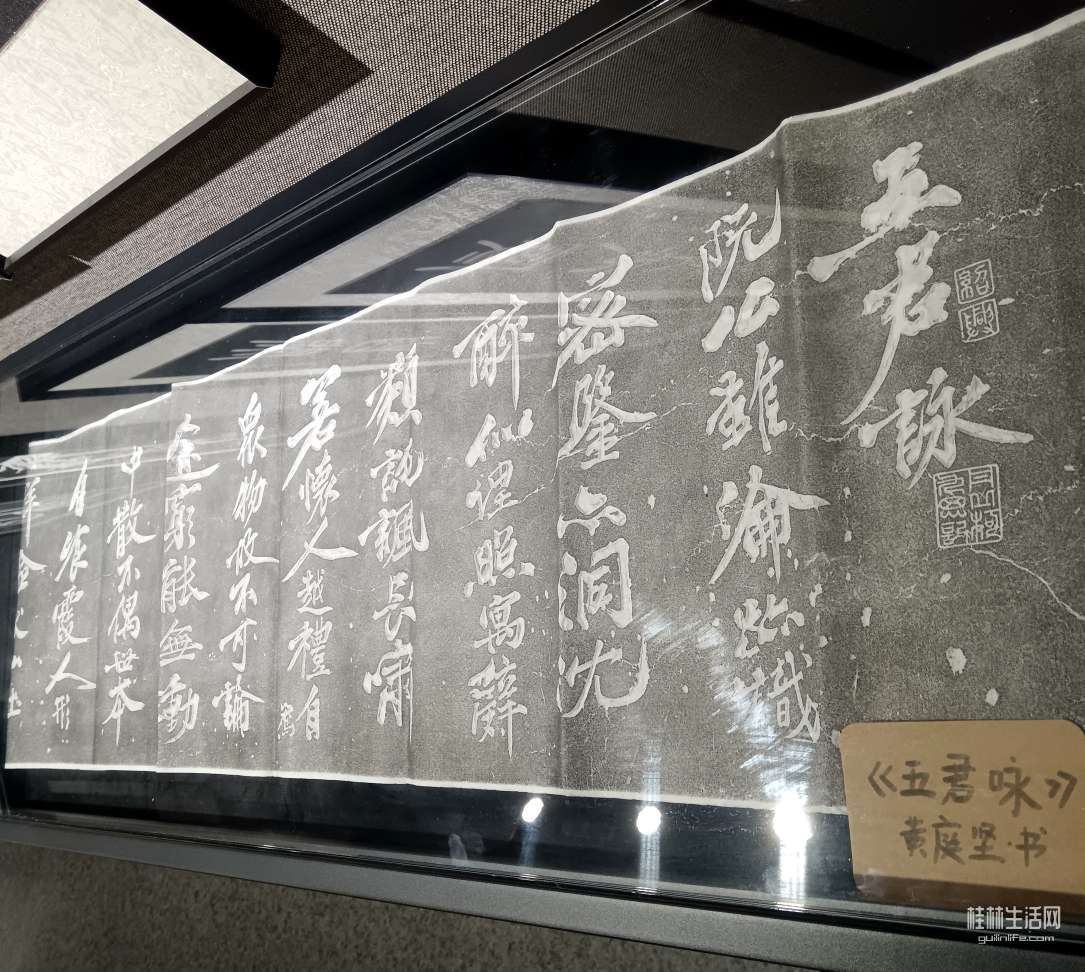 五君詠
紹興
阮公雖淪跡識
密鑒亦洞沈
醉似埋照寓辭
類託諷長嘯
若懷人越禮自
驚
衆物故不可論
途窮能無動
中散不偶世本
自餐霞人形
《五君咏》
黄庭坚·书
桂林生活网
guilinlife.com